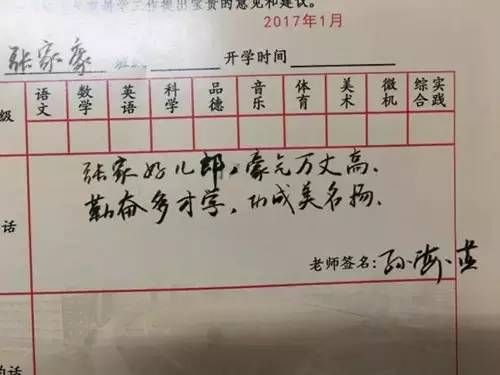 学工作提出宝贵的意见和建议。
2017年1月
张家豪 开学时间
级 语文 数学 英语 科学 品德 音乐 体育 美术 微机 综合实践
张家好儿郎，豪气万丈高、
勤奋多才学，功成美名扬。
话
老师签名：孙海燕
的话